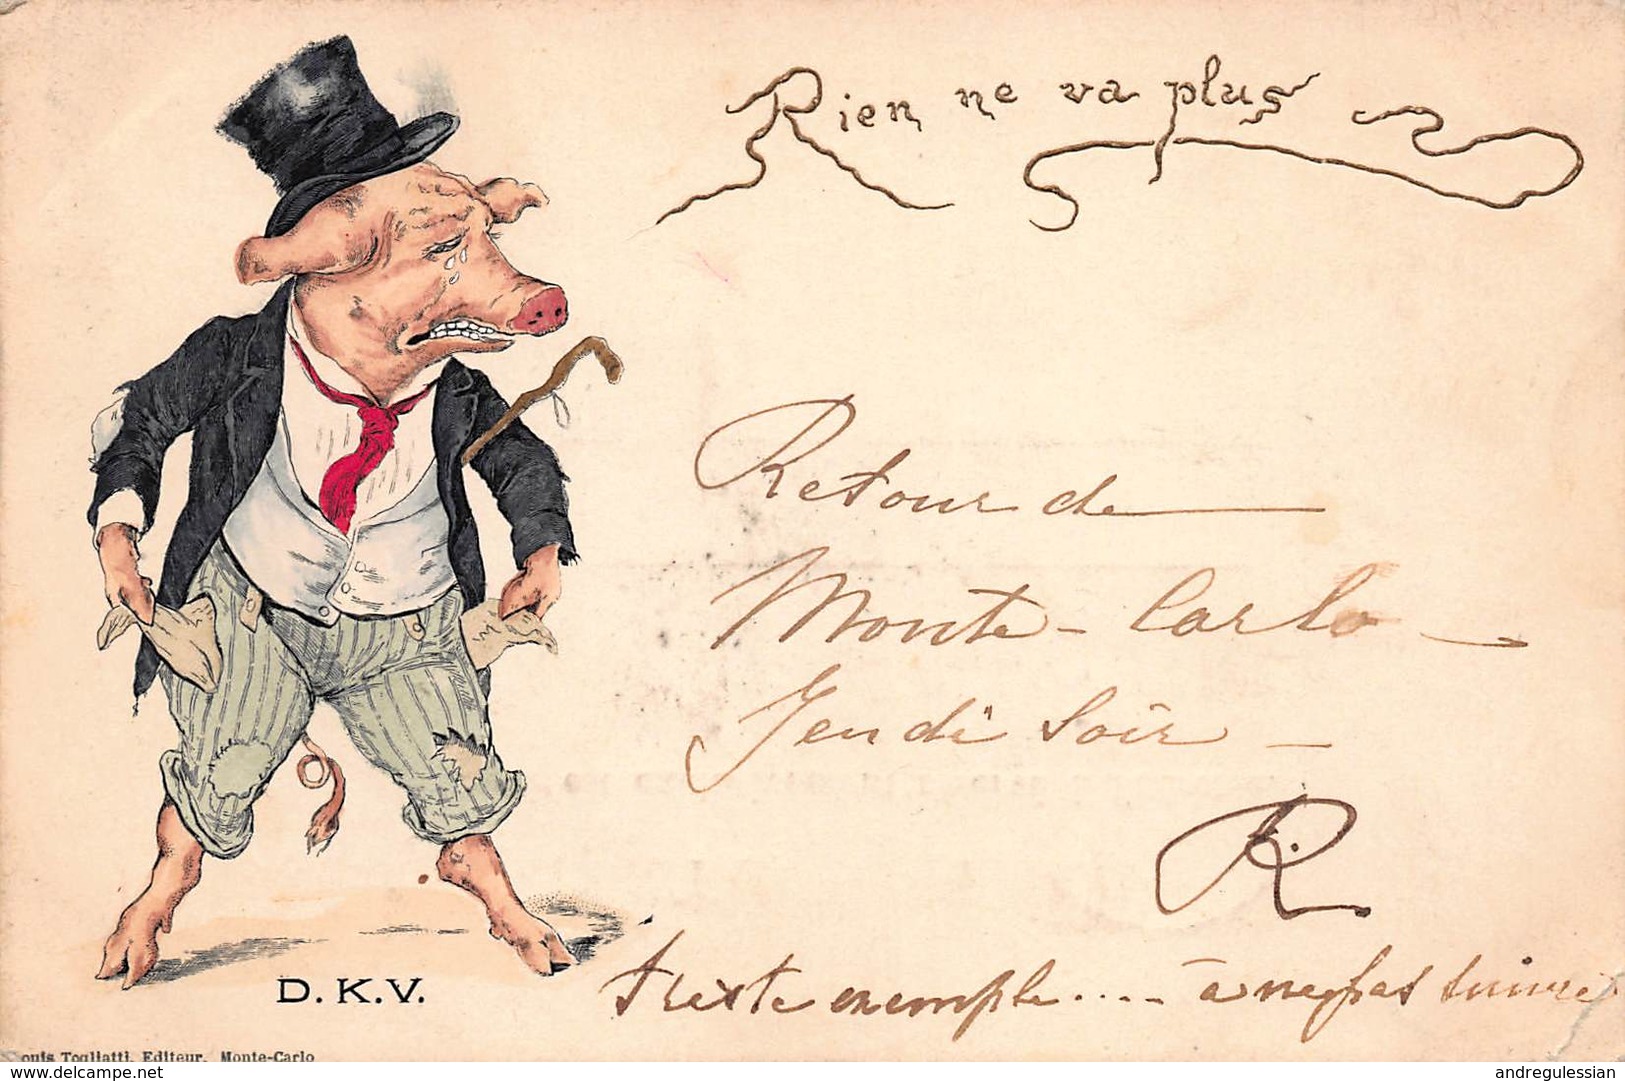 Rien ne va plus
Retour de
Monte-Carlo
Jeudi soir
R.
triste exemple.... à ne pas suivre
D. K. V.
Louis Togliatti, Editeur, Monte-Carlo
delcampe.net
andregulessian